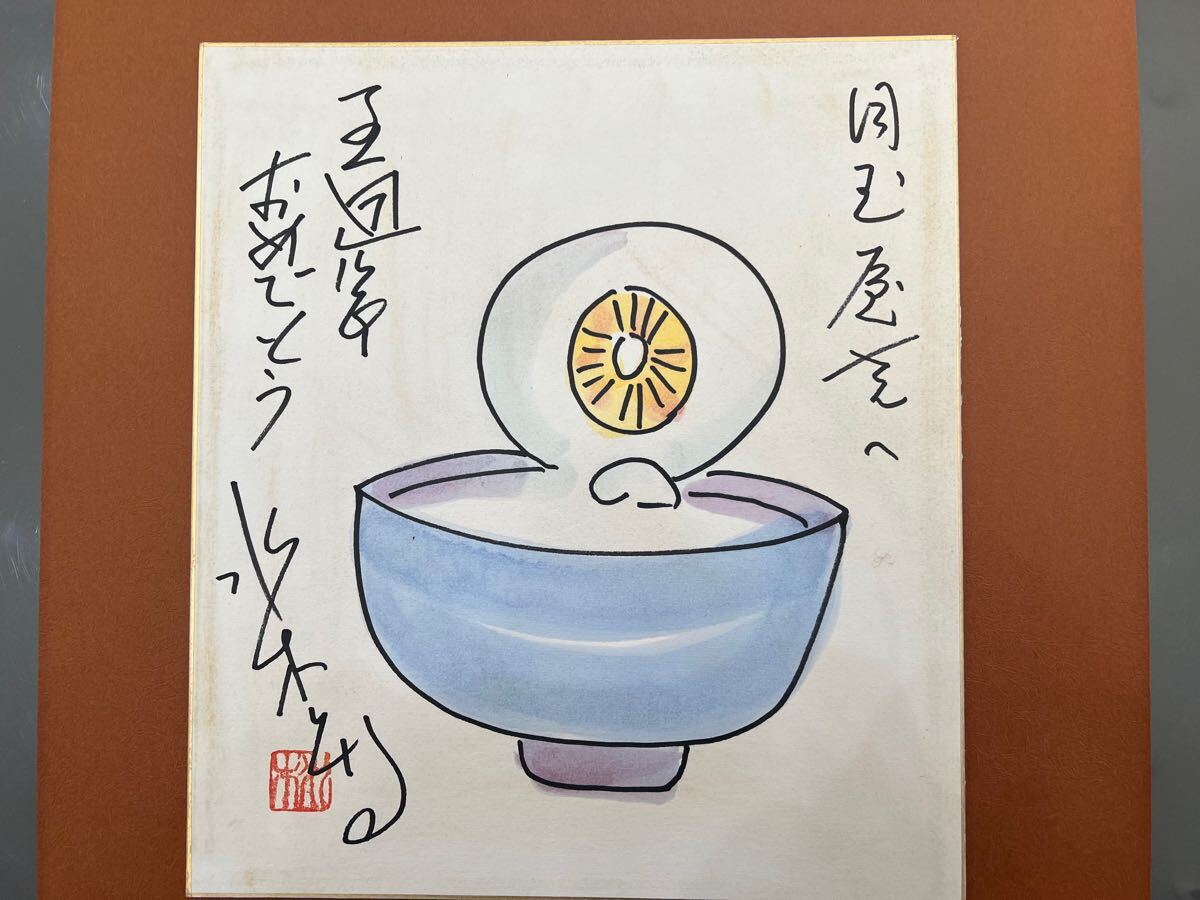 目玉屋さんへ
五週年
おめでとう
水木しげる